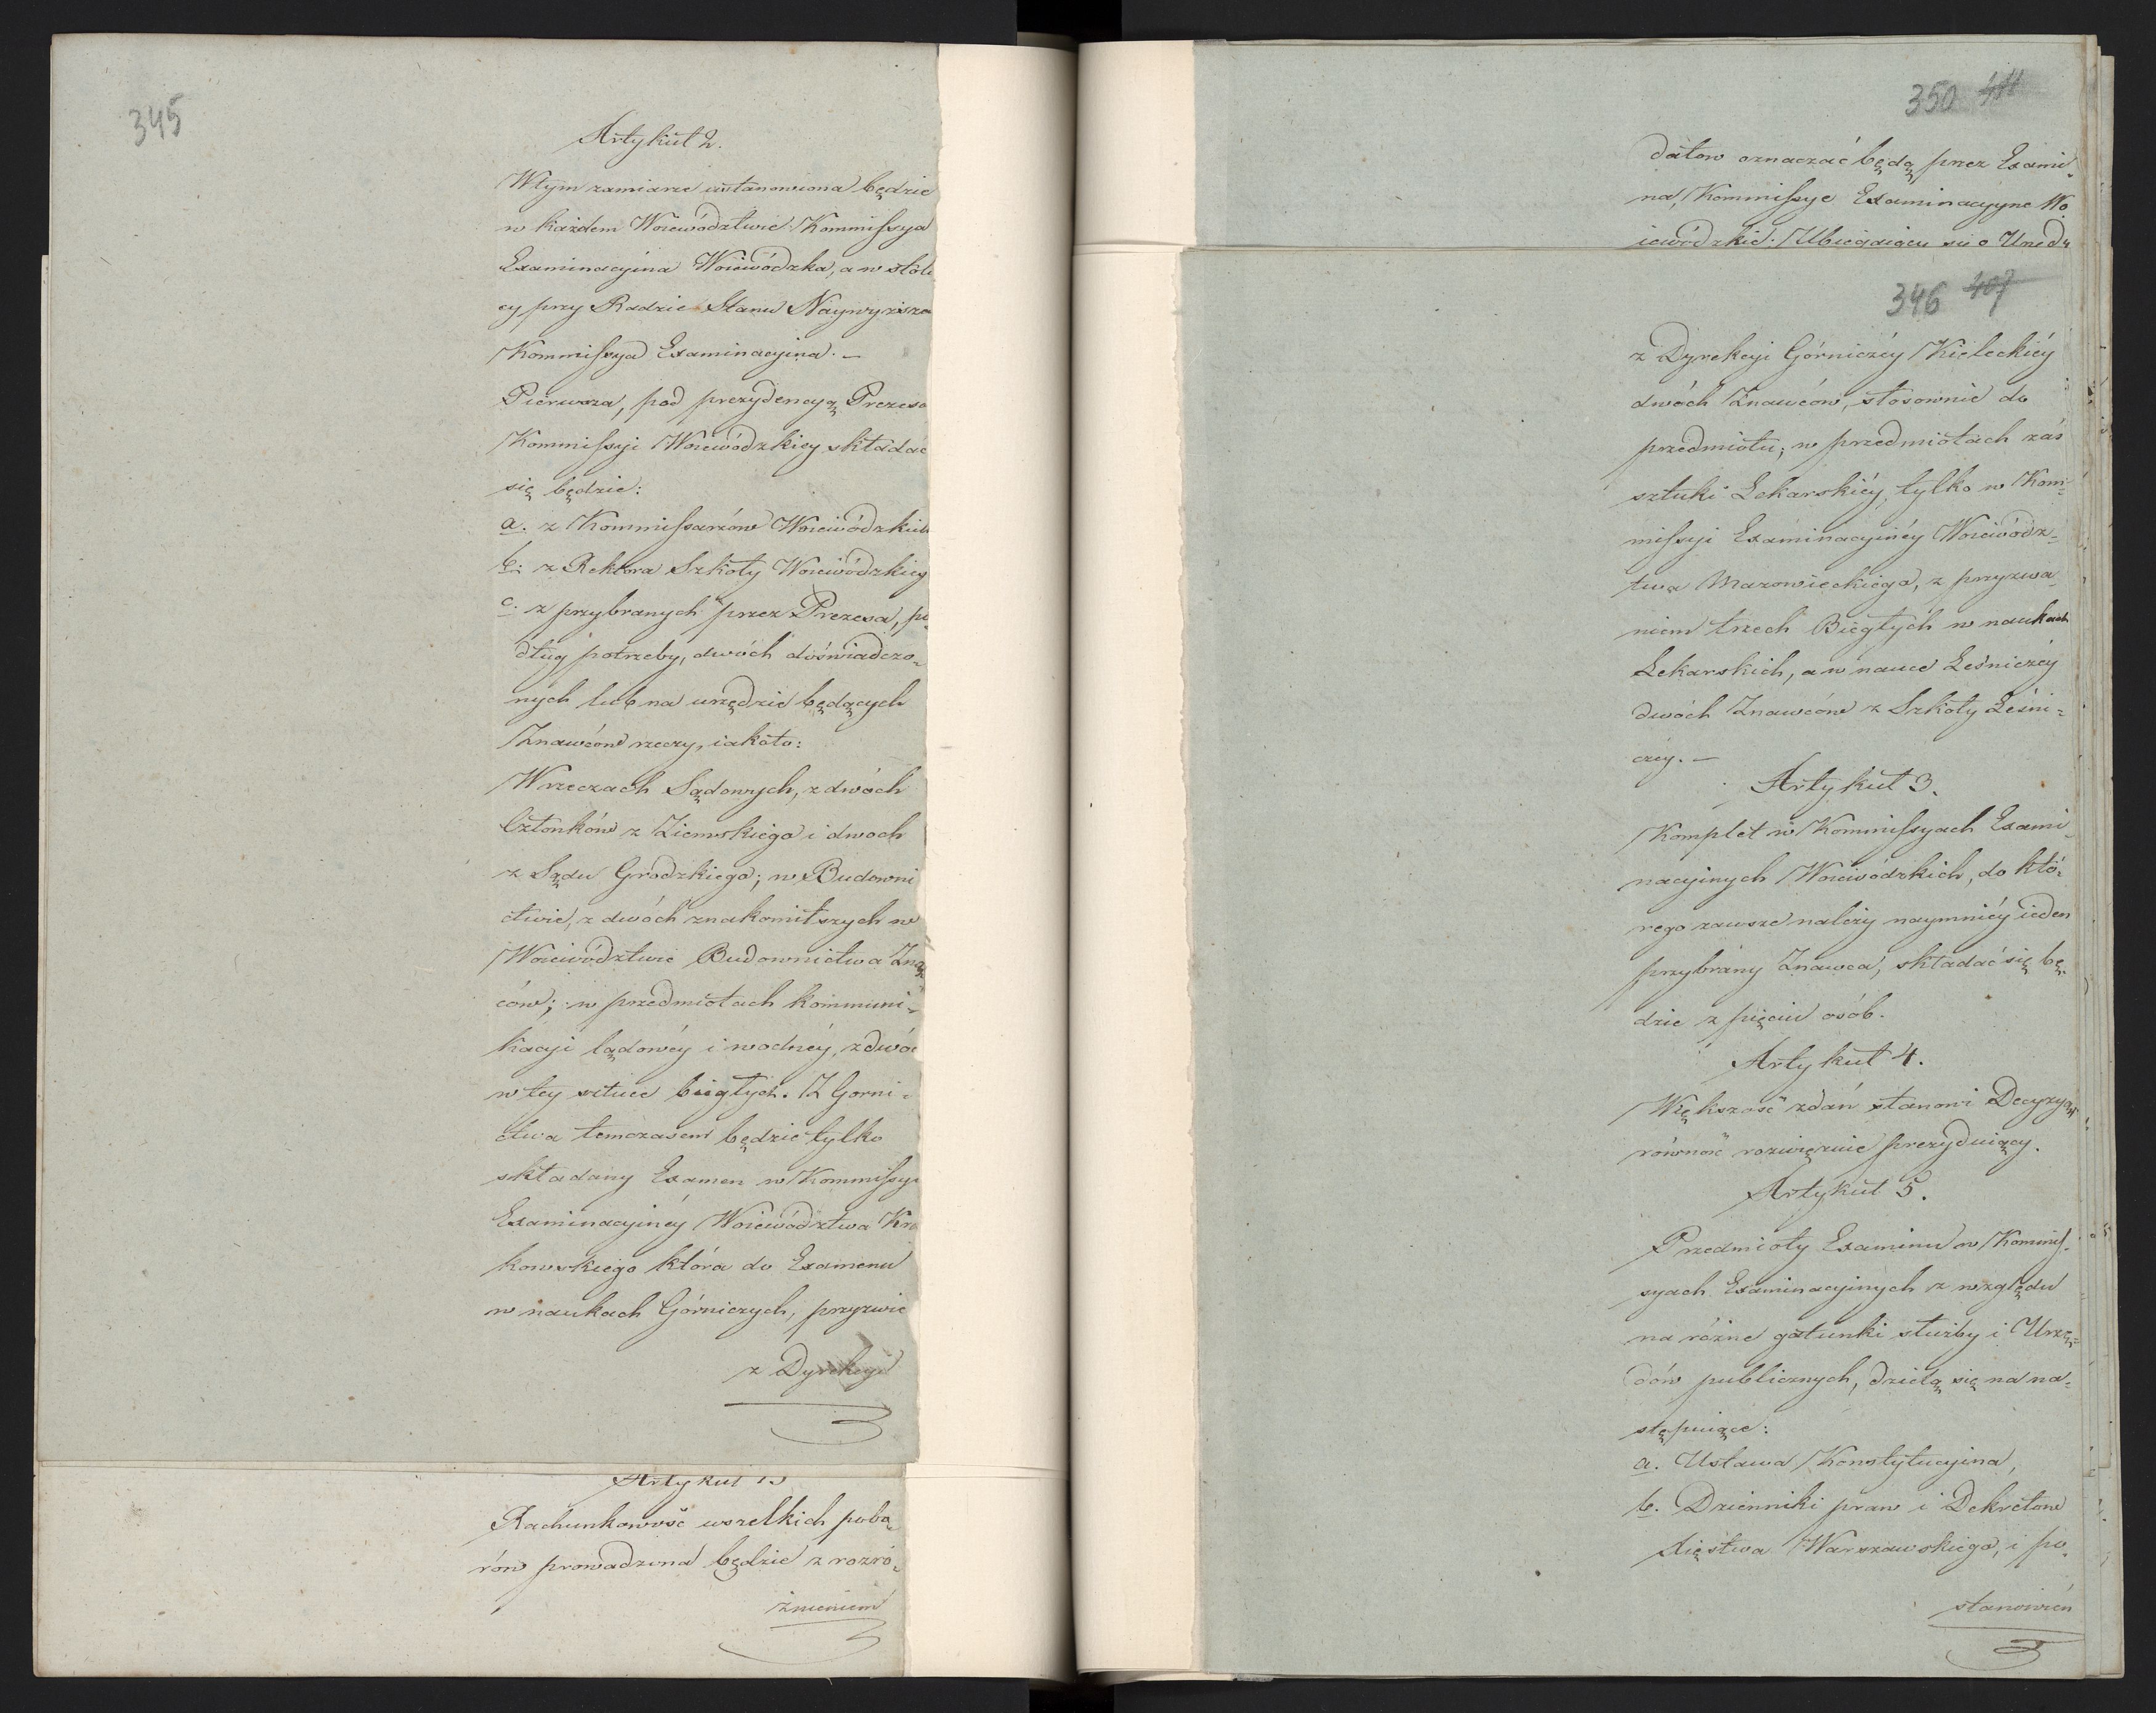 345
Artykuł 2.
W tym zamiarze ustanowiona będzie
w każdem Woiewództwie Kommissya
Examinacyina Woiewódzka, a w stoli
cy przy Radzie Stanu Naywyższa
Kommissya Examinacyina. –
Pierwsza, pod prezydencyą Prezesa
Kommissyi Woiewódzkiey składać
się będzie:
a. z Kommissarzów Woiewódzkich
b. z Rektora Szkoły Woiewódzkiey
c. z przybranych przez Prezesa, po„
dług potrzeby, dwóch doświadczo„
nych lub na urzędzie będących
Znawców rzeczy, iakoto:
W rzeczach Sądowych, z dwóch
Członków z Ziemskiego i dwoch
z Sądu Grodzkiego; w Budowni
ctwie, z dwóch znakomitszych w
Woiewództwie Budownictwa Zna
ców; w przedmiotach kommuni„
kacyi lądowéy i wodnéy, z dwóc
w tey sztuce biegłych. Z Gorni„
ctwa temczasem będzie tylko
składany Examen w Kommissyi
Examinacyinéy Woiewództwa Kra
kowskiego która do Examenu
w naukach Górniczych, przyzwie
z Dyrekcyi
Artykuł 13
Rachunkowość wszelkich pobo„
rów prowadzona będzie z rozró„
żnieniem
350 411
datow oznaczać będą przez Exami„
na, Kommissye Examinacyyne Wo
iewódzkie. Ubiegaiący się o Urzędy
346 407
z Dyrekcyi Górniczéy Kieleckiéy
dwóch Znawców, stosownie do
przedmiotu; w przedmiotach zaś
sztuki Lekarskiéy, tylko w Kom„
missyi Examinacyinéy Woiewódz„
twa Mazowieckiego, z przyzwa„
niem trzech Biegłych w naukach
Lekarskich, a w nauce Leśniczéy
dwóch Znawców z Szkoły Leśni„
czey. –
Artykuł 3.
Komplet w Kommissyach Exami„
nacyinych Woiewódzkich, do któ„
rego zawsze należy naymniéy ieden
przybrany Znawca, składać się bę„
dzie z pięciu osób.
Artykuł 4.
Większość zdań stanowi Decyzyą,
równość rozwięzuie prezyduiący.
Artykuł 5.
Przedmioty Examinu w Kommis„
syach Examinacyinych z względu
na różne gatunki służby i Urzę„
dów publicznych, dzielą się na na„
stępuiące:
a. Ustawa Konstytucyina,
b. Dzienniki praw i Dekretów
Xięstwa Warszawskiego, i po„
stanowień